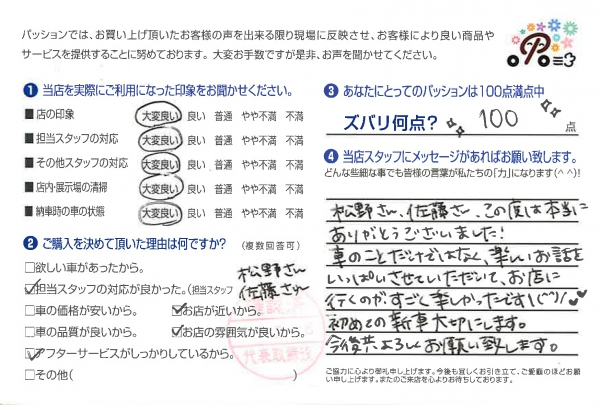 パッションでは、お買い上げ頂いたお客様の声を出来る限り現場に反映させ、お客様により良い商品や
サービスを提供することに努めております。大変お手数ですが是非、お声を聞かせてください。
❶ 当店を実際にご利用になった印象をお聞かせください。
■店の印象 大変良い 良い 普通 やや不満 不満
■担当スタッフの対応 大変良い 良い 普通 やや不満 不満
■その他スタッフの対応 大変良い 良い 普通 やや不満 不満
■店内・展示場の清掃 大変良い 良い 普通 やや不満 不満
■納車時の車の状態 大変良い 良い 普通 やや不満 不満
❷ ご購入を決めて頂いた理由は何ですか? (複数回答可)
□欲しい車があったから。
☑担当スタッフの対応が良かった。(担当スタッフ 松野さん 佐藤さん
□車の価格が安いから。 ☑お店が近いから。
□車の品質が良いから。 ☑お店の雰囲気が良いから。
☑アフターサービスがしっかりしているから。
□その他(
代表取締役
❸ あなたにとってのパッションは100点満点中
ズバリ何点? 100 点
❹ 当店スタッフにメッセージがあればお願い致します。
どんな些細な事でも皆様の言葉が私たちの「力」になります(^ ^)!
松野さん、佐藤さん、この度は本当に
ありがとうございました!
車のことだけではなく、楽しいお話を
いっぱいさせていただいて、お店に
行くのがすごく楽しかったです!(^^)/
初めての新車大切にします。
今後共よろしくお願い致します。
ご協力に心より御礼申し上げます。今後も宜しくお引き立て、ご愛顧のほどお願い申し上げます。またのご来店を心よりお待ちしております。